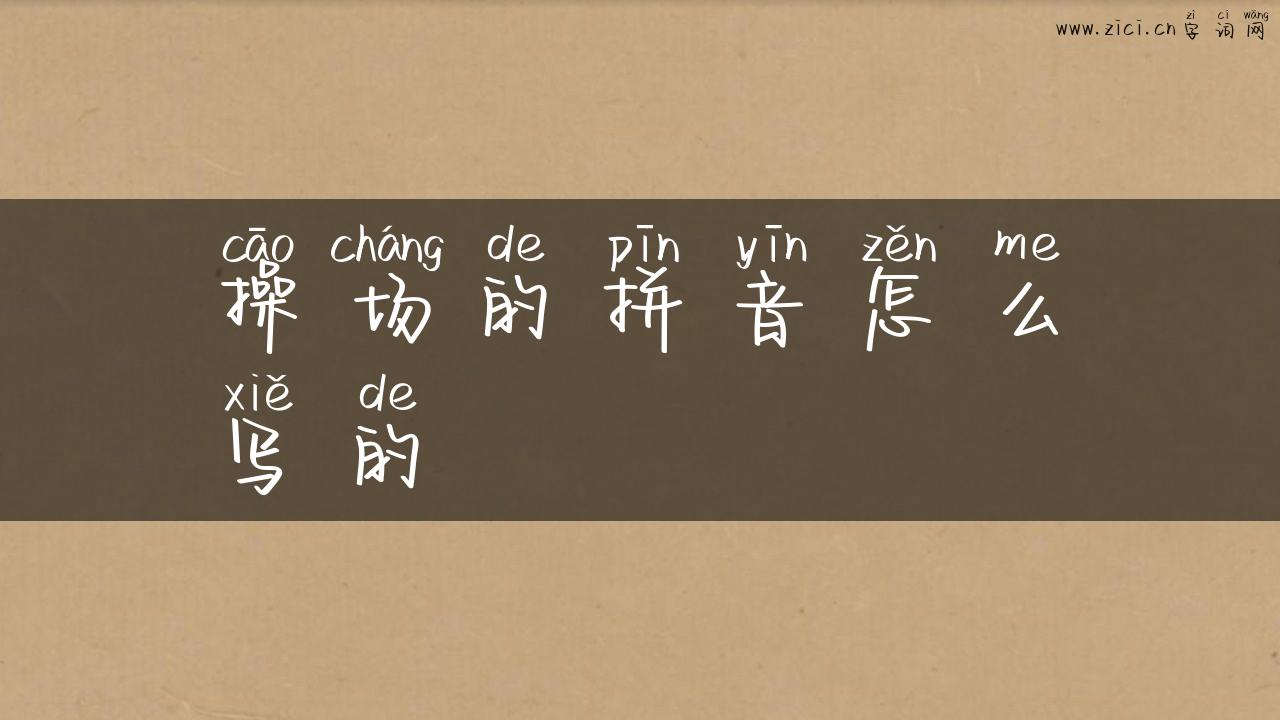 zì cí wǎng
www.zici.cn 字词网
cāo cháng de pīn yīn zěn me
操场的拼音怎么
xiě de
写的